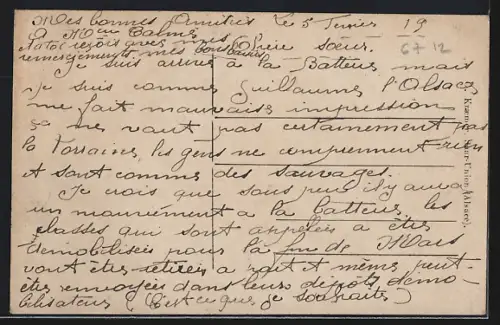 Mes bonnes Amitiés Le 5 Février 19
a Mme
reçois avec mes
remerciements mes bons baisers Chère sœur.
Je suis arrivé à la Batterie mais
je suis comme Guillaume l'Alsace
me fait mauvaise impression
ça ne vaut pas certainement pas
la Lorraine, les gens ne comprennent rien
et sont comme des sauvages.
Je crois que sous peu il y aura
un mouvement a la batterie, les
classes qui sont appelées a être
démobilisées pour la fin de Mars
vont être a part et même peut-
être renvoyés dans leurs dépôts démo-
bilisateurs (C'est ce que je souhaite)
67 12
(Alsace)